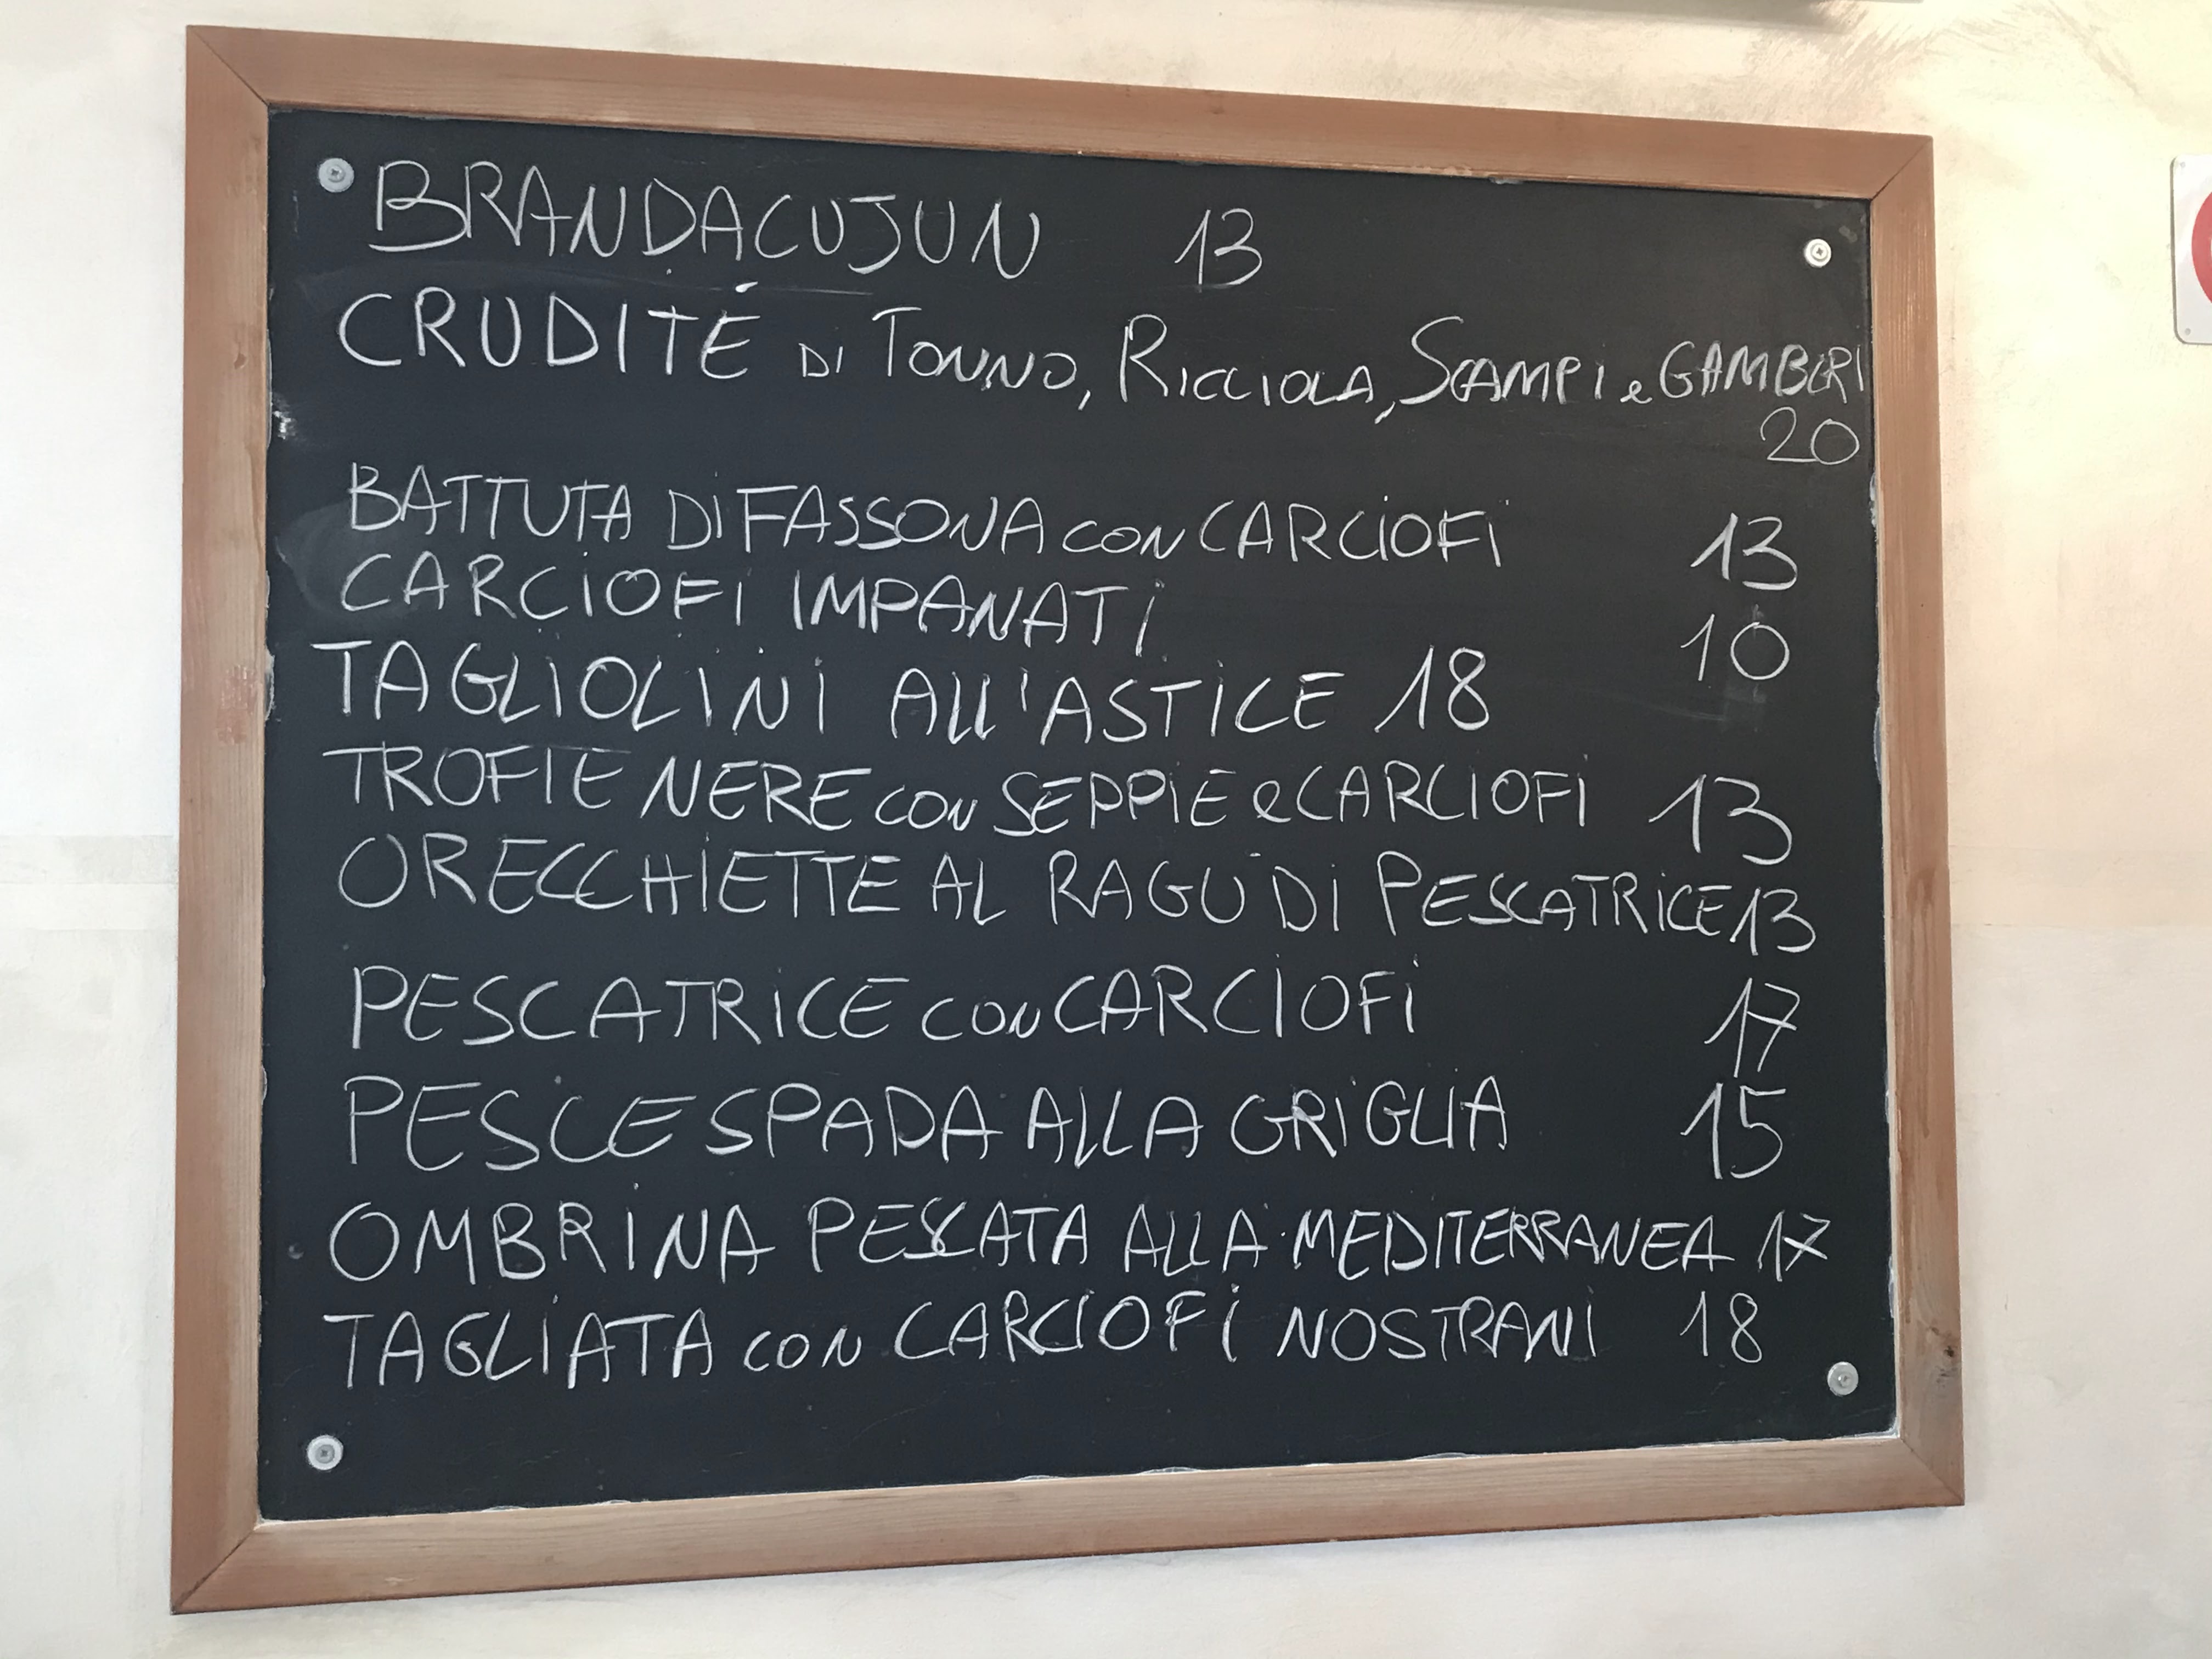 BRANDACUJUN 13
CRUDITÉ DI TONNO, RICCIOLA, SCAMPI e GAMBERI
20
BATTUTA DI FASSONA CON CARCIOFI 13
CARCIOFI IMPANATI 10
TAGLIOLINI ALL'ASTICE 18
TROFIE NERE CON SEPPIE e CARCIOFI 13
ORECCHIETTE AL RAGÙ DI PESCATRICE 13
PESCATRICE CON CARCIOFI 17
PESCE SPADA ALLA GRIGLIA 15
OMBRINA PESCATA ALLA MEDITERRANEA 17
TAGLIATA CON CARCIOFI NOSTRANI 18